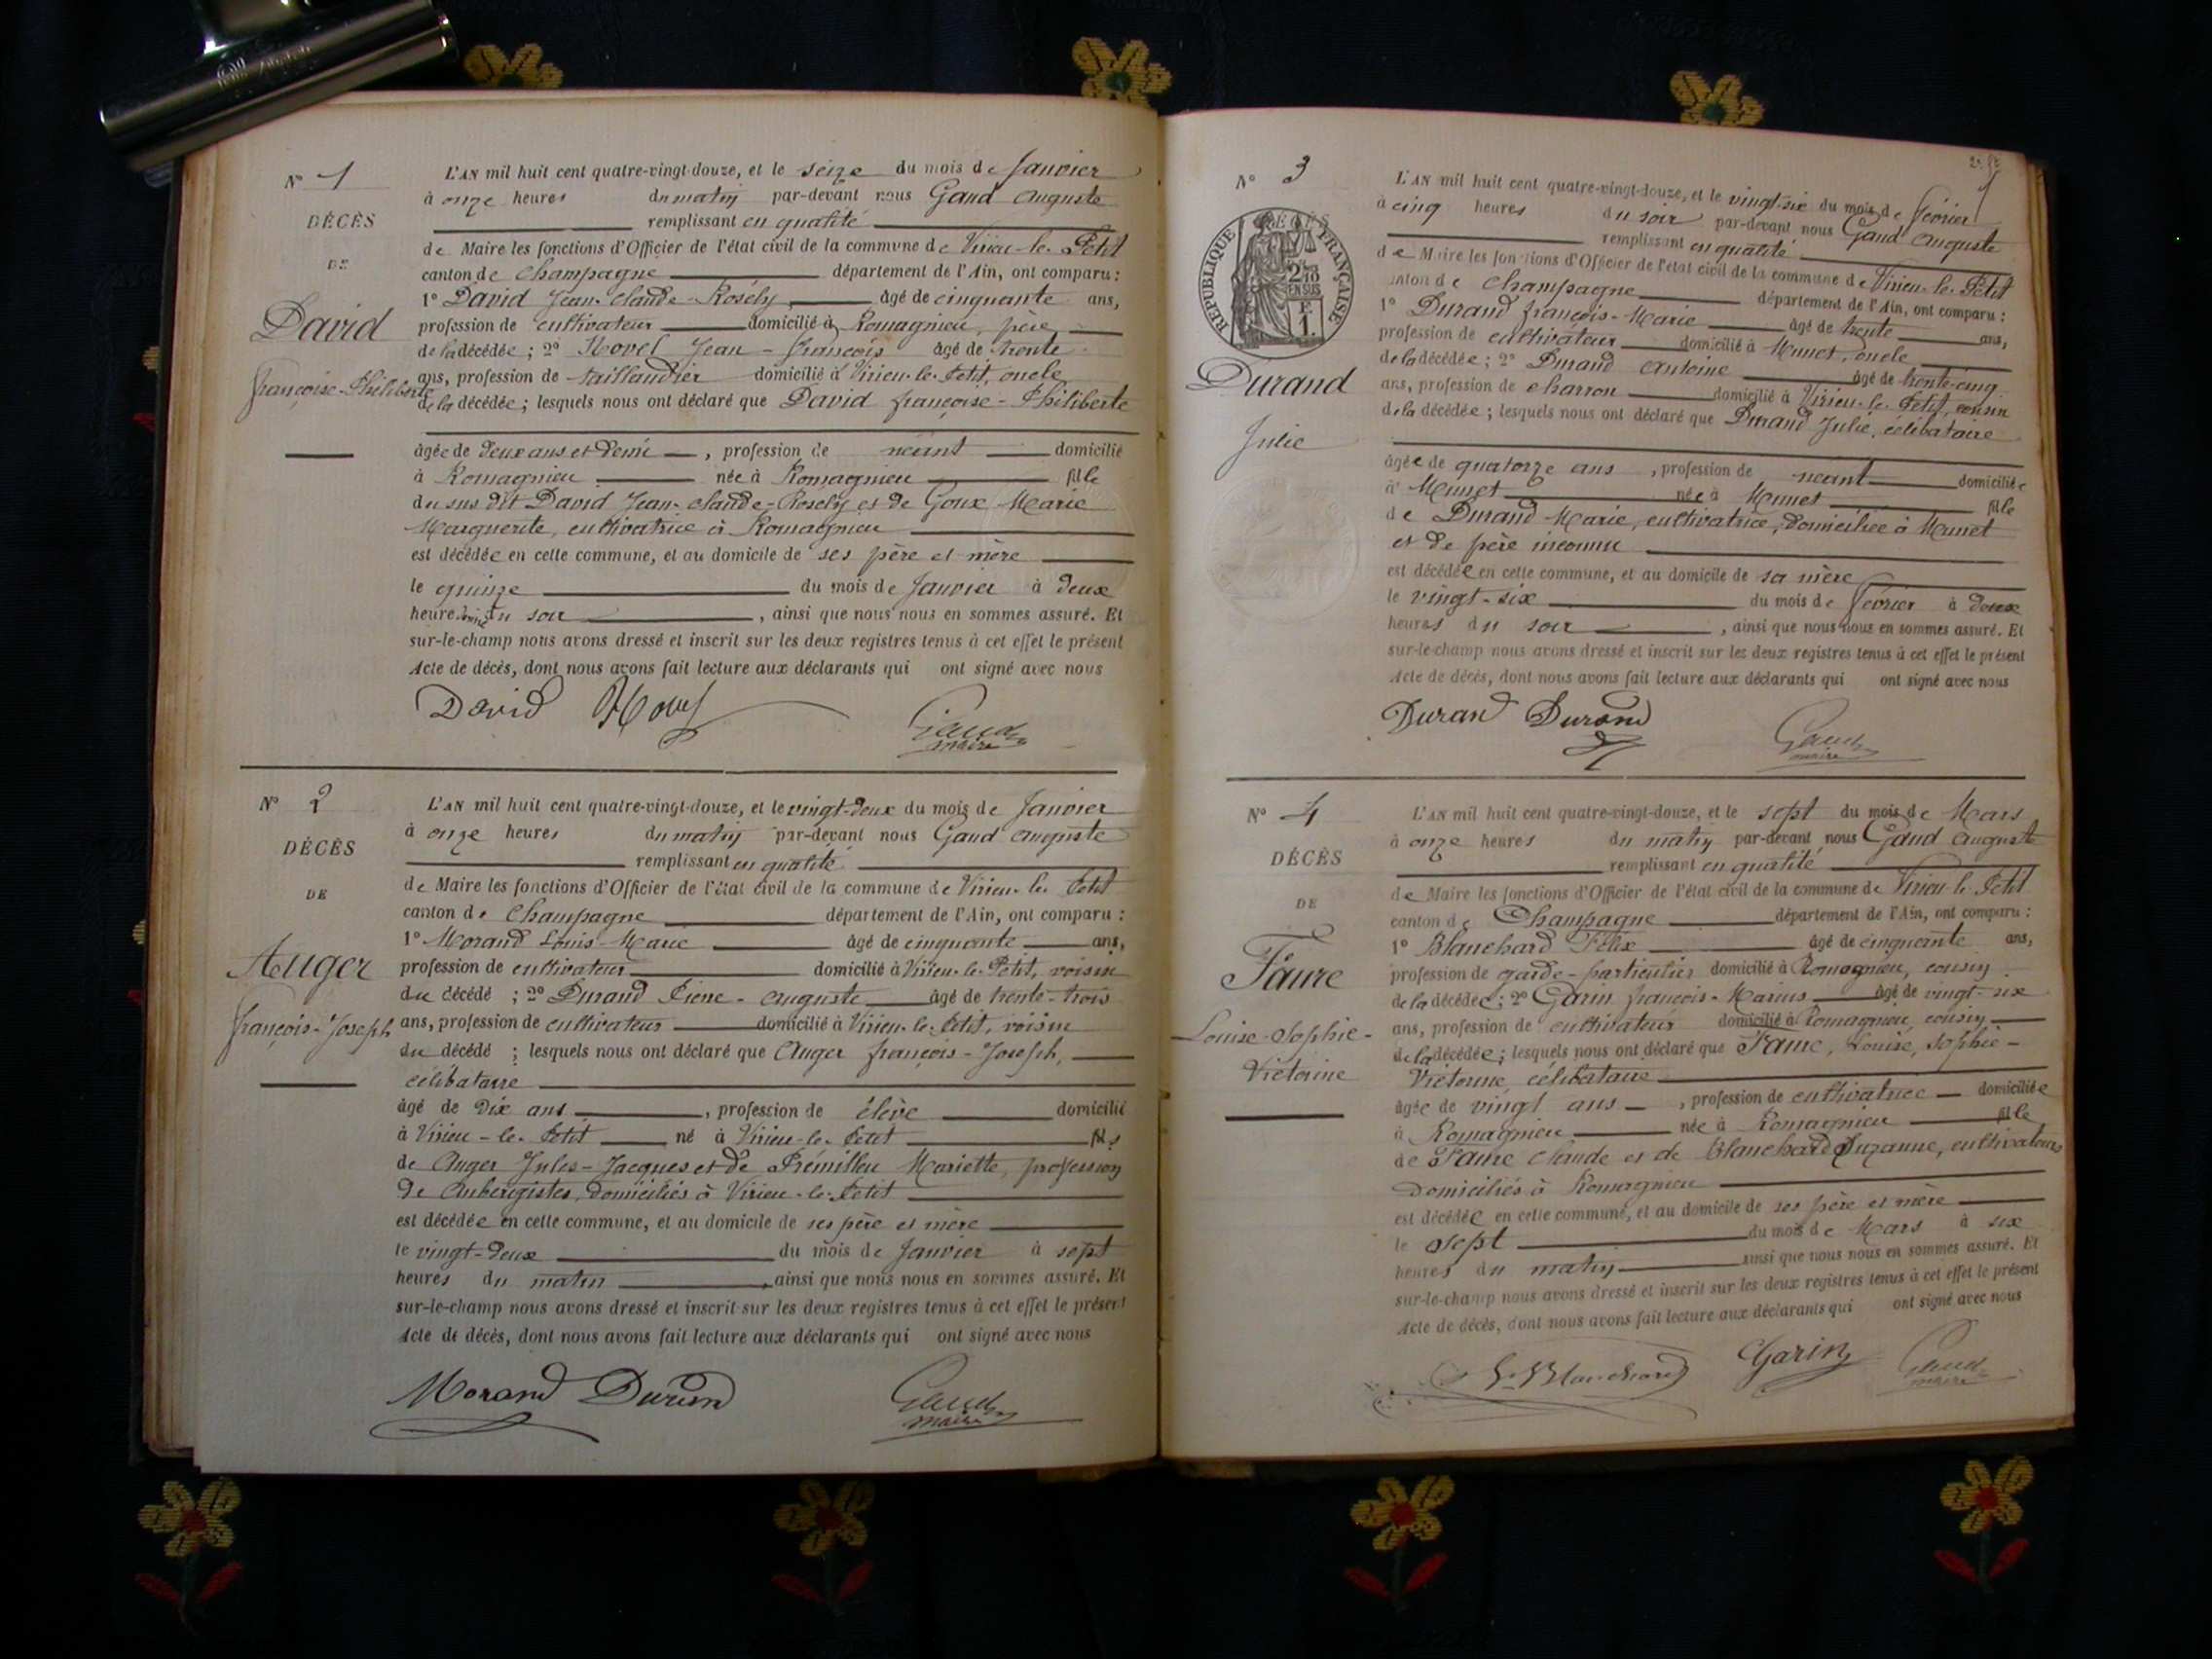 N° 1
DÉCÈS
DE
David
françoise-Philiberte
L'AN mil huit cent quatre-vingt-douze, et le seize du mois de Janvier
à onze heures du matin par-devant nous Gaud Auguste
remplissant en qualité
de Maire les fonctions d'Officier de l'état civil de la commune de Virieu-le-Petit
canton de Champagne département de l'Ain, ont comparu :
1° David Jean-Claude-Rosély âgé de cinquante ans,
profession de cultivateur domicilié à Romagnieu, père
de la décédée ; 2° Hovel Jean-françois âgé de trente
ans, profession de taillandier domicilié à Virieu-le-Petit, oncle
de la décédée ; lesquels nous ont déclaré que David françoise-Philiberte
âgée de deux ans et demi, profession de néant domicilié
à Romagnieu née à Romagnieu fille
du sus dit David Jean-Claude-Rosely et de Goux Marie
Marguerite, cultivatrice à Romagnieu
est décédée en cette commune, et au domicile de ses père et mère
le quinze du mois de Janvier à deux
heures du soir, ainsi que nous nous en sommes assuré. Et
sur-le-champ nous avons dressé et inscrit sur les deux registres tenus à cet effet le présent
Acte de décès, dont nous avons fait lecture aux déclarants qui ont signé avec nous
David Hovel Gaud
maire
N° 2
DÉCÈS
DE
Auger
françois-Joseph
L'AN mil huit cent quatre-vingt-douze, et le vingt-deux du mois de Janvier
à onze heures du matin par-devant nous Gaud Auguste
remplissant en qualité
de Maire les fonctions d'Officier de l'état civil de la commune de Virieu-le-Petit
canton de Champagne département de l'Ain, ont comparu :
1° Morand Louis-Marie âgé de cinquante ans,
profession de cultivateur domicilié à Virieu-le-Petit, voisin
du décédé ; 2° Durand Pierre-Auguste âgé de trente-trois
ans, profession de cultivateur domicilié à Virieu-le-Petit, voisin
du décédé ; lesquels nous ont déclaré que Auger françois-Joseph,
célibataire
âgé de Dix ans, profession de élève domicilié
à Virieu-le-Petit né à Virieu-le-Petit fils
de Auger Jules-Jacques et de Prémilleu Mariette, profession
de Aubergistes, domiciliés à Virieu-le-Petit
est décédée en cette commune, et au domicile de ses père et mère
le vingt-deux du mois de Janvier à sept
heures du matin, ainsi que nous nous en sommes assuré. Et
sur-le-champ nous avons dressé et inscrit sur les deux registres tenus à cet effet le présent
Acte de décès, dont nous avons fait lecture aux déclarants qui ont signé avec nous
Morand Durand Gaud
maire
N° 3
RÉPUBLIQUE FRANÇAISE
2/10
EN SUS
F
1.
Durand
Julie
L'AN mil huit cent quatre-vingt-douze, et le vingt-six du mois de Février
à cinq heures du soir par-devant nous Gaud Auguste
remplissant en qualité
de Maire les fonctions d'Officier de l'état civil de la commune de Virieu-le-Petit
canton de Champagne département de l'Ain, ont comparu :
1° Durand françois-Marie âgé de trente ans,
profession de cultivateur domicilié à Munet, oncle
de la décédée ; 2° Durand Antoine âgé de trente-cinq
ans, profession de charron domicilié à Virieu-le-Petit, cousin
de la décédée ; lesquels nous ont déclaré que Durand Julie, célibataire
âgée de quatorze ans, profession de néant domiciliée
à Munet née à Munet fille
de Durand Marie, cultivatrice, domiciliée à Munet
et de père inconnu
est décédée en cette commune, et au domicile de sa mère
le vingt-six du mois de Février à deux
heures du soir, ainsi que nous nous en sommes assuré. Et
sur-le-champ nous avons dressé et inscrit sur les deux registres tenus à cet effet le présent
Acte de décès, dont nous avons fait lecture aux déclarants qui ont signé avec nous
Durand Durand Gaud
maire
N° 4
DÉCÈS
DE
Faure
Louise-Sophie-
Victorine
L'AN mil huit cent quatre-vingt-douze, et le sept du mois de Mars
à onze heures du matin par-devant nous Gaud Auguste
remplissant en qualité
de Maire les fonctions d'Officier de l'état civil de la commune de Virieu-le-Petit
canton de Champagne département de l'Ain, ont comparu :
1° Blanchard Félix âgé de cinquante ans,
profession de garde-particulier domicilié à Romagnieu, cousin
de la décédée ; 2° Garin françois-Marius âgé de vingt-six
ans, profession de cultivateur domicilié à Romagnieu, cousin
de la décédée ; lesquels nous ont déclaré que Faure, Louise, Sophie-
Victorine, célibataire
âgée de vingt ans, profession de cultivatrice domiciliée
à Romagnieu née à Romagnieu fille
de Faure Claude et de Blanchard Suzanne, cultivateurs
domiciliés à Romagnieu
est décédée en cette commune, et au domicile de ses père et mère
le sept du mois de Mars à six
heures du matin ainsi que nous nous en sommes assuré. Et
sur-le-champ nous avons dressé et inscrit sur les deux registres tenus à cet effet le présent
Acte de décès, dont nous avons fait lecture aux déclarants qui ont signé avec nous
Blanchard Garin Gaud
maire